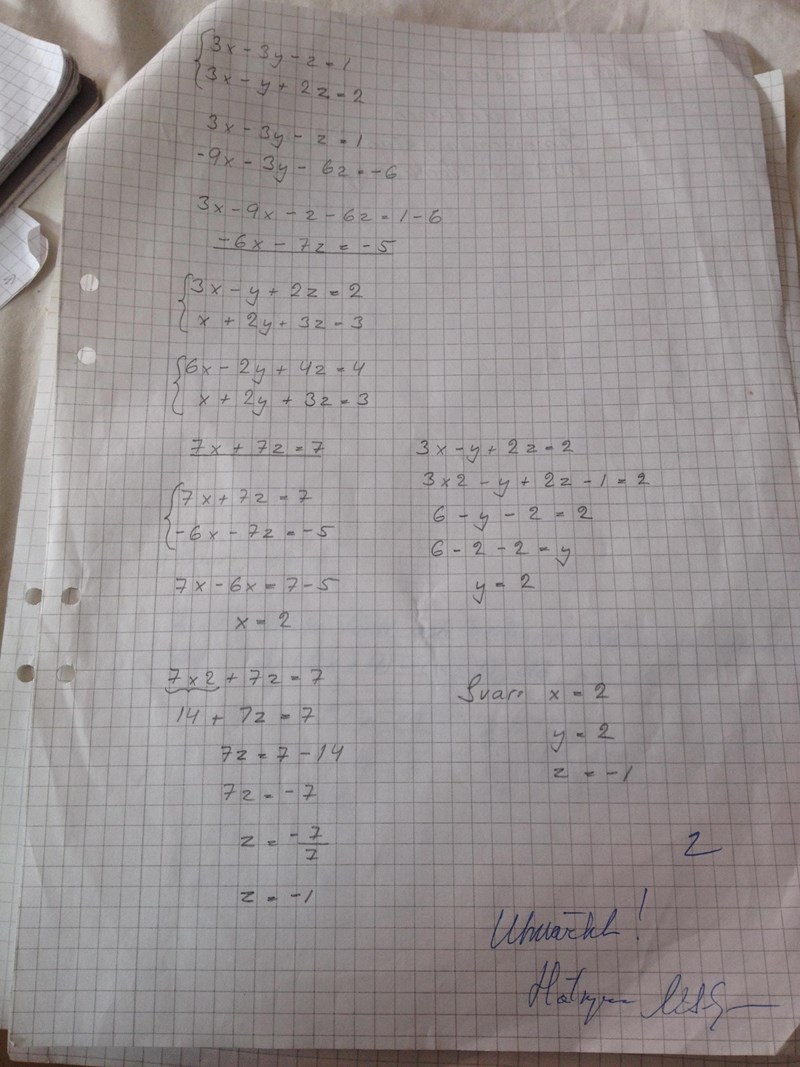 3x - 3y - z = 1
3x - y + 2z = 2
3x - 3y - z = 1
-9x - 3y - 6z = -6
3x - 9x - z - 6z = 1 - 6
-6x - 7z = -5
3x - y + 2z = 2
x + 2y + 3z = 3
6x - 2y + 4z = 4
x + 2y + 3z = 3
7x + 7z = 7
7x + 7z = 7
-6x - 7z = -5
7x - 6x = 7 - 5
x = 2
7 x 2 + 7z = 7
14 + 7z = 7
7z = 7 - 14
7z = -7
z = -7/7
z = -1
3x - y + 2z = 2
3x2 - y + 2z - 1 = 2
6 - y - 2 = 2
6 - 2 - 2 = y
y = 2
Svar: x = 2
y = 2
z = -1
2
Utmärkt!